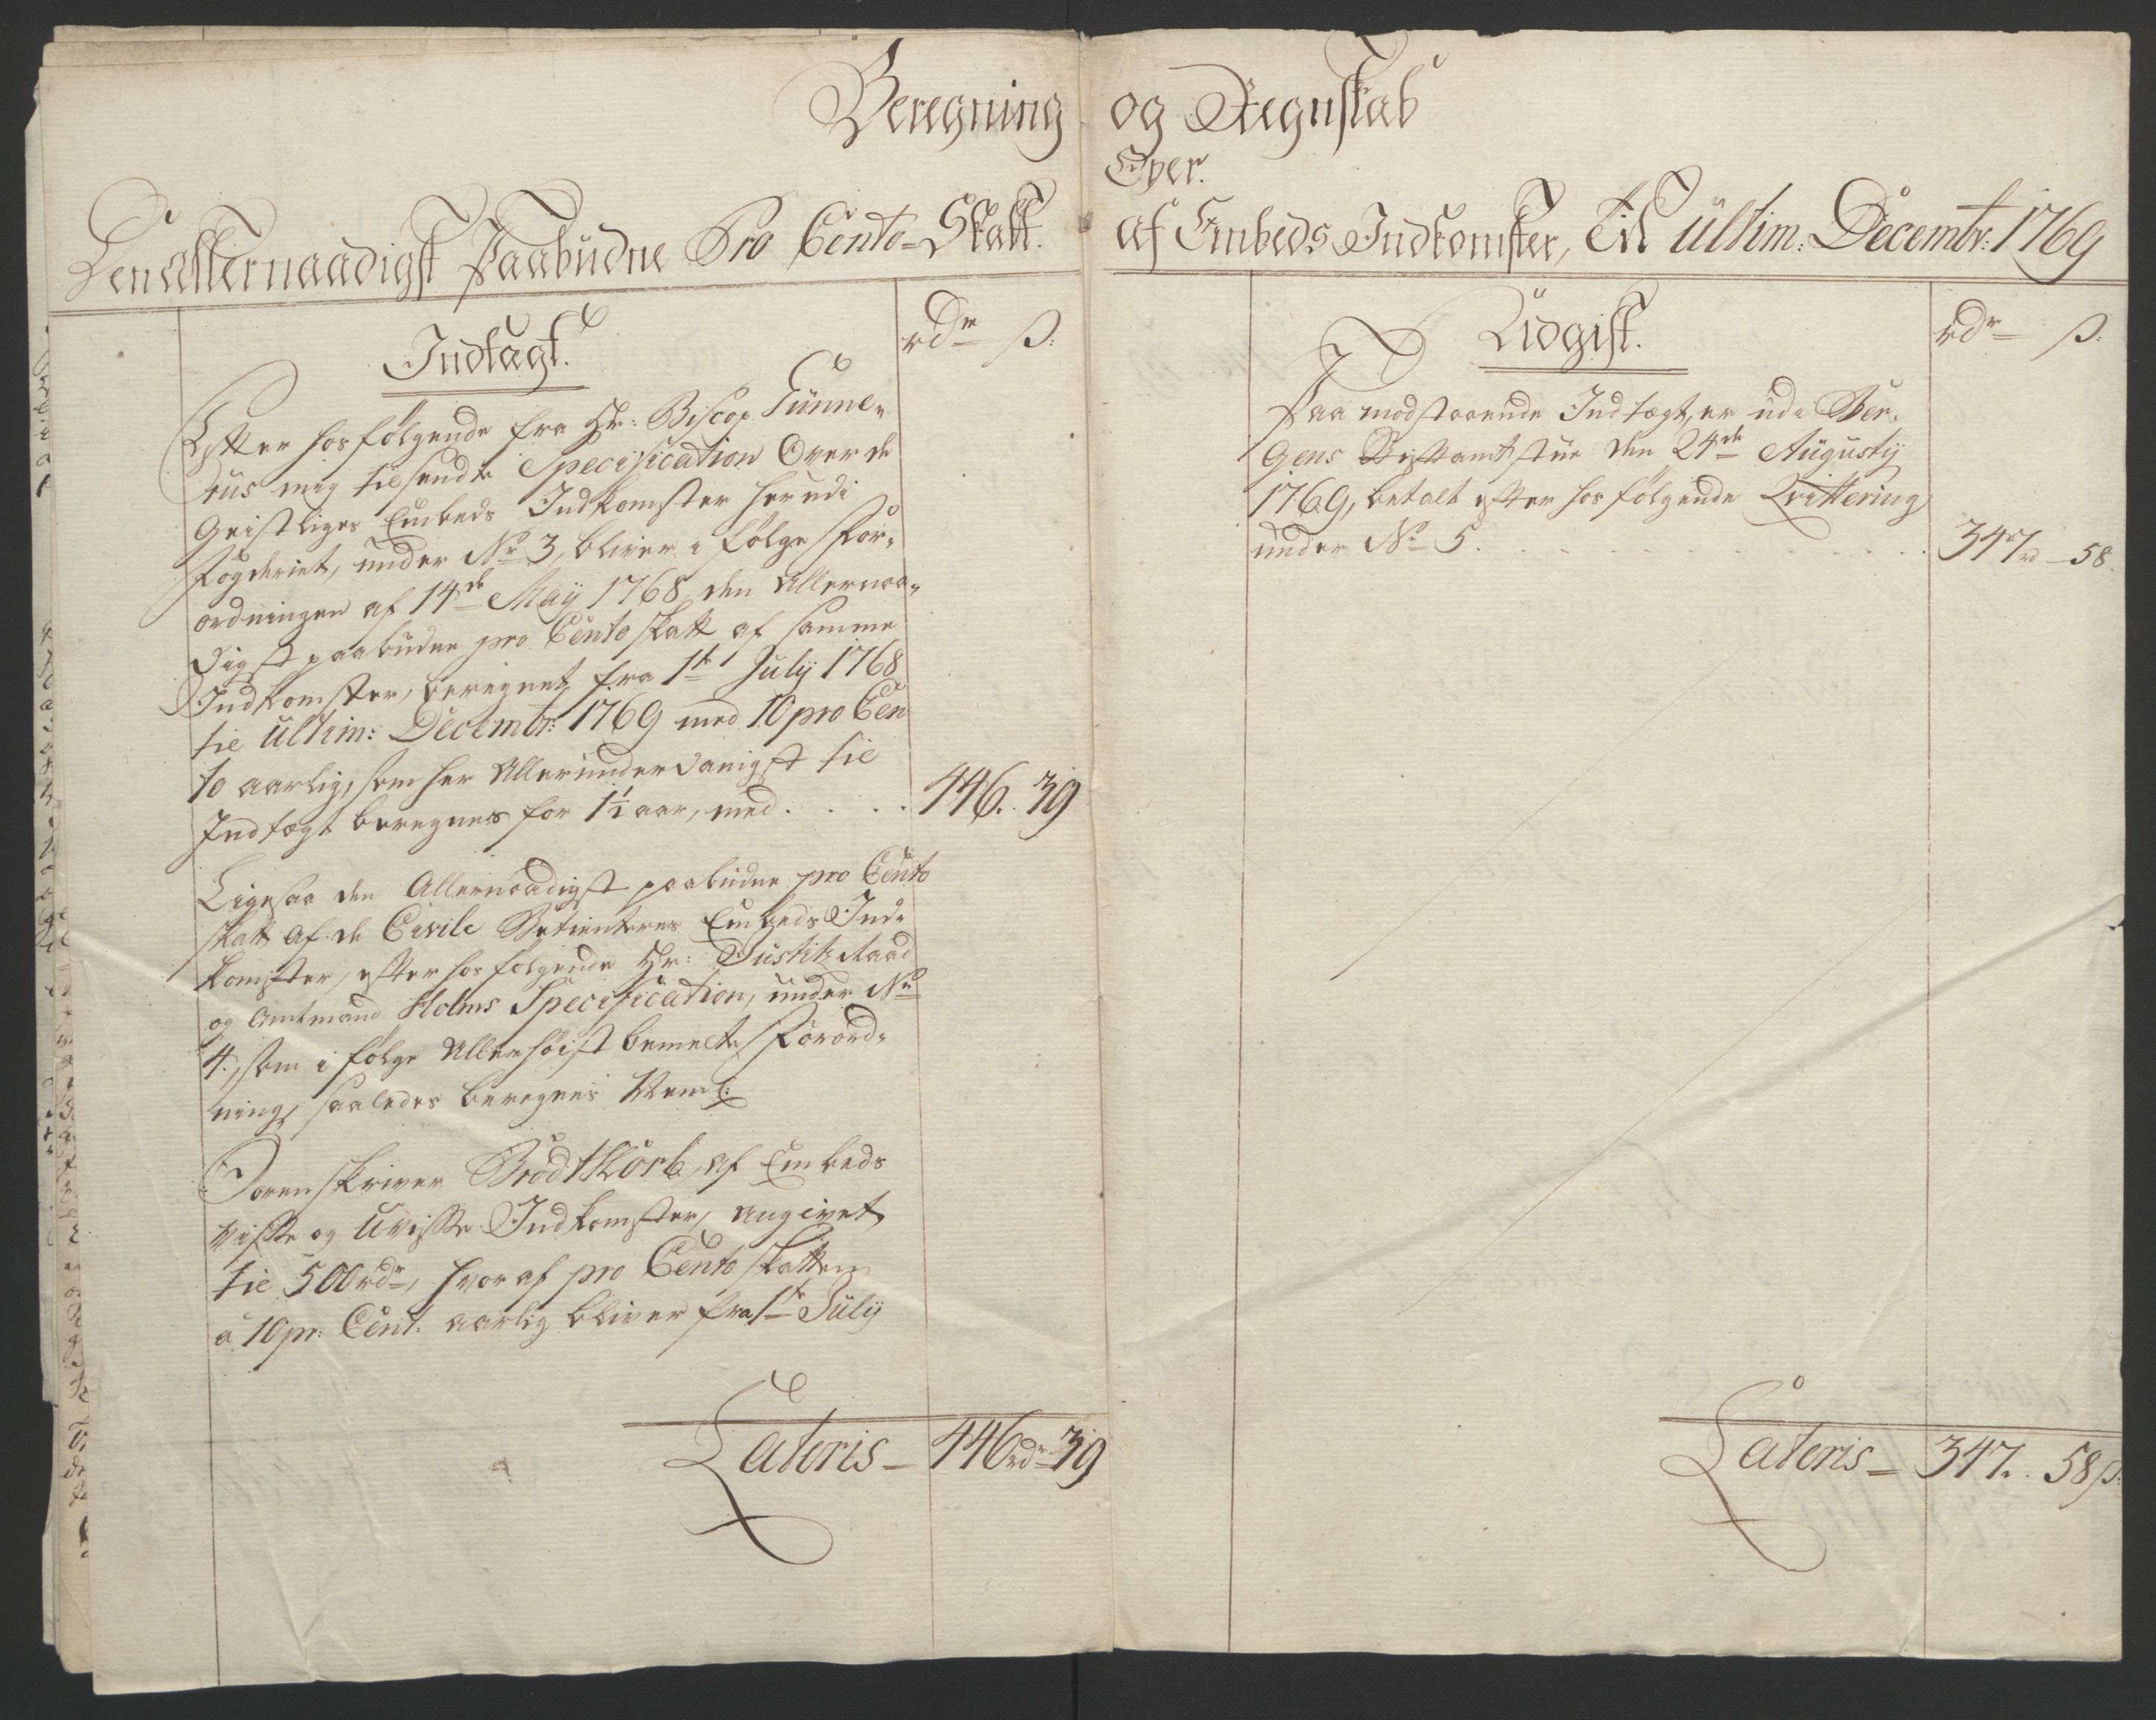 Beregning og Regnskab
Over
Den Allernaadigst Paabudne Pro Cento-Skatt. af Embeds Indkomster, til ultim: Decembr: 1769
Indtægt.
rdr ß:
Efter hosfølgende fra Hr: Biscop Günne-
rus mig tilsendte Specification Over de
Geistliges Embeds Indkomster her udi
Fogderiet, under No 3, bliver i følge For-
ordningen af 14de Maij 1768 den Allernaa-
digst paabudne pro Cento skatt af samme
Indkomster, beregnet fra 1te Julij 1768
til ultim: Decembr: 1769 med 10 pro Cen
to aarlig, som her Allerunderdanigst til
Indtægt beregnes for 1½ aar, med . . . . 446. 39
Ligesaa den Allernaadigst paabudne pro Cento
skatt af de Civile Betienteres Embeds Ind-
komster, efter hosfølgende Hr: Justitz Raad
og Amtmand Holms Specification, under No
4, som i følge Allerhøist bemelte Forord-
ning, saaledes beregnes Neml:
Sorenskriver Brodtkorb, af Embeds
visse og Uvisse Indkomster, angivet
til 500 rdr, hvoraf pro Cento skatten
a 10 pr: Cent: aarlig bliver fra 1te Julij
Lateris — 446 rdr 39
Udgift.
rdr ß:
Paa modstaaende Indtægt, er udi Ber-
gens Stiftamtstue den 24de Augustij
1769, betalt efter hosfølgende Qvittering
under No 5. . . . . . . . . 347 rd — 58.
Lateris — 347. 58 ß: